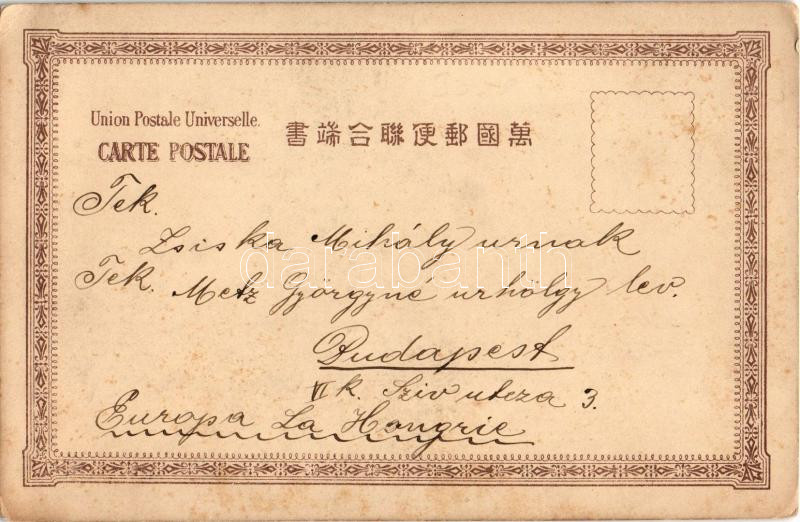 Union Postale Universelle.
CARTE POSTALE
書端合聯便郵國萬
Tek.
Zsiska Mihály urnak
Tek. Metz Györgyné urhölgy lev.
Budapest
VI k. Sziv utcza 3.
Europa La Hongrie
darabanth